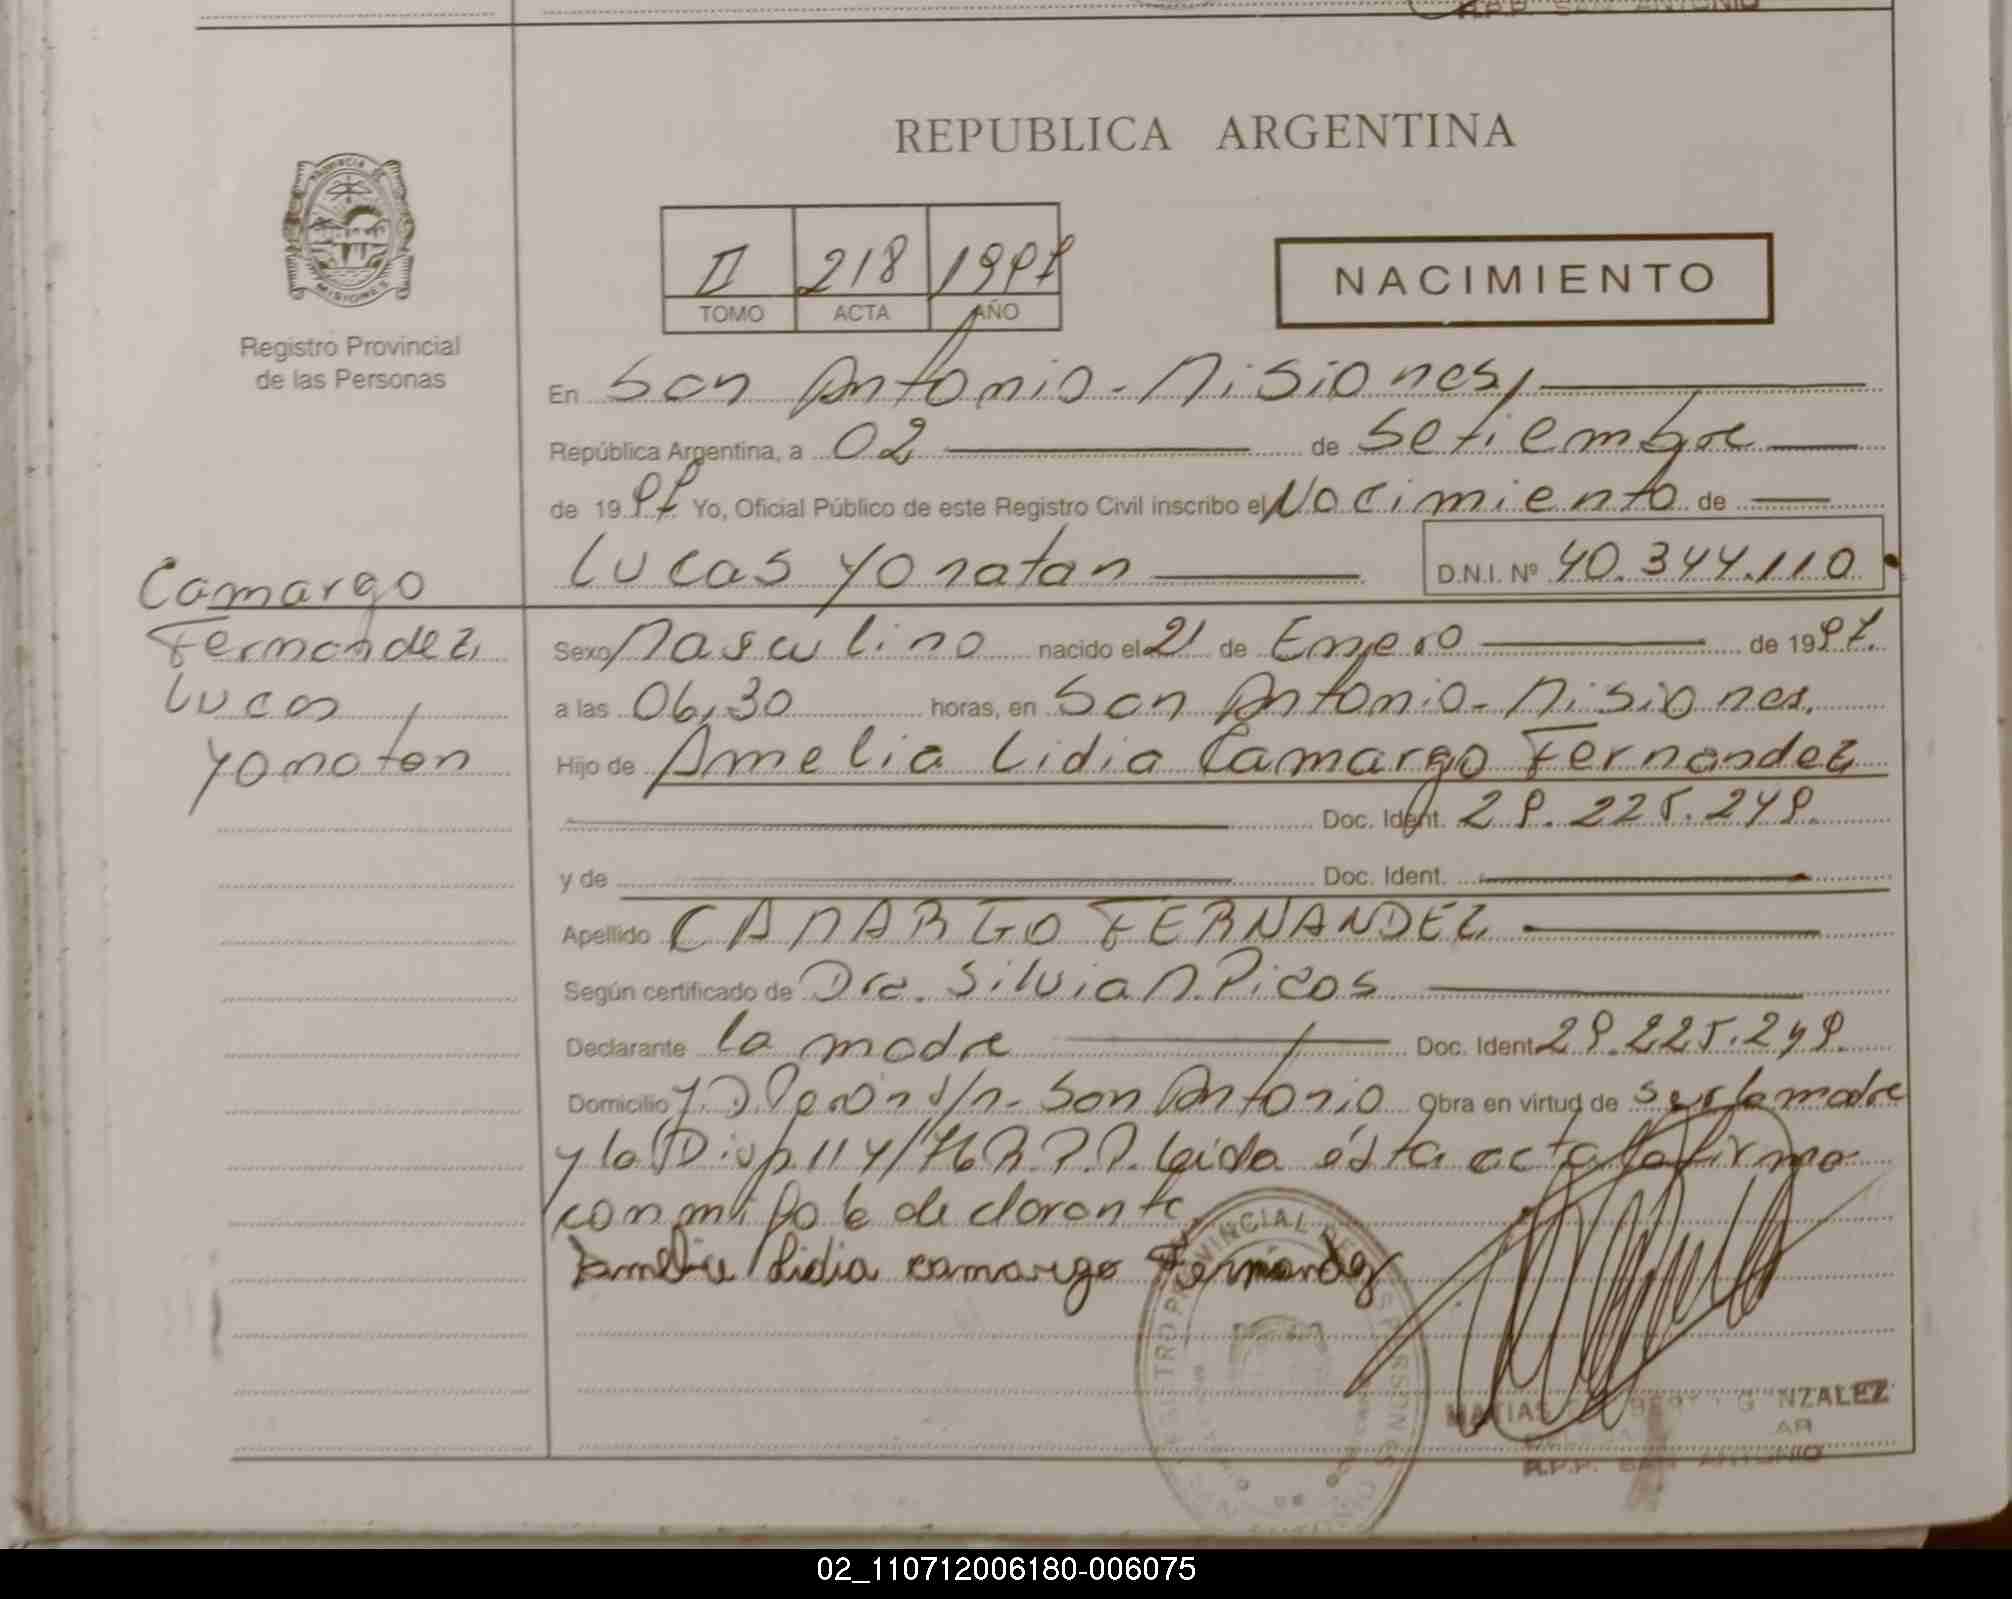 REPUBLICA ARGENTINA
PROVINCIA DE
MISIONES
Registro Provincial
de las Personas
II 218 1997
TOMO ACTA AÑO
NACIMIENTO
En San Antonio-Misiones,
República Argentina, a 02 de Setiembre
de 1997 Yo, Oficial Público de este Registro Civil inscribo el Nacimiento de
Lucas Yonatan D.N.I. Nº 40.344.110
Camargo
Fernandez
Lucas
Yonatan
Sexo Masculino nacido el 21 de Enero de 1997.
a las 06,30 horas, en San Antonio-Misiones.
Hijo de Amelia Lidia Camargo Fernandez
Doc. Ident. 29.225.249.
y de Doc. Ident.
Apellido CAMARGO FERNANDEZ
Según certificado de Dra. Silvia M. Picos
Declarante la madre Doc. Ident. 29.225.249.
Domicilio J.D.Peron s/n- San Antonio Obra en virtud de ser la madre
y la Disp. 114/76 R.P.P. Leida ésta acta la firma
conmigo la declarante
Amelia Lidia camargo Fernandez
MATIAS GONZALEZ
R.P.P. SAN ANTONIO
02_110712006180-006075